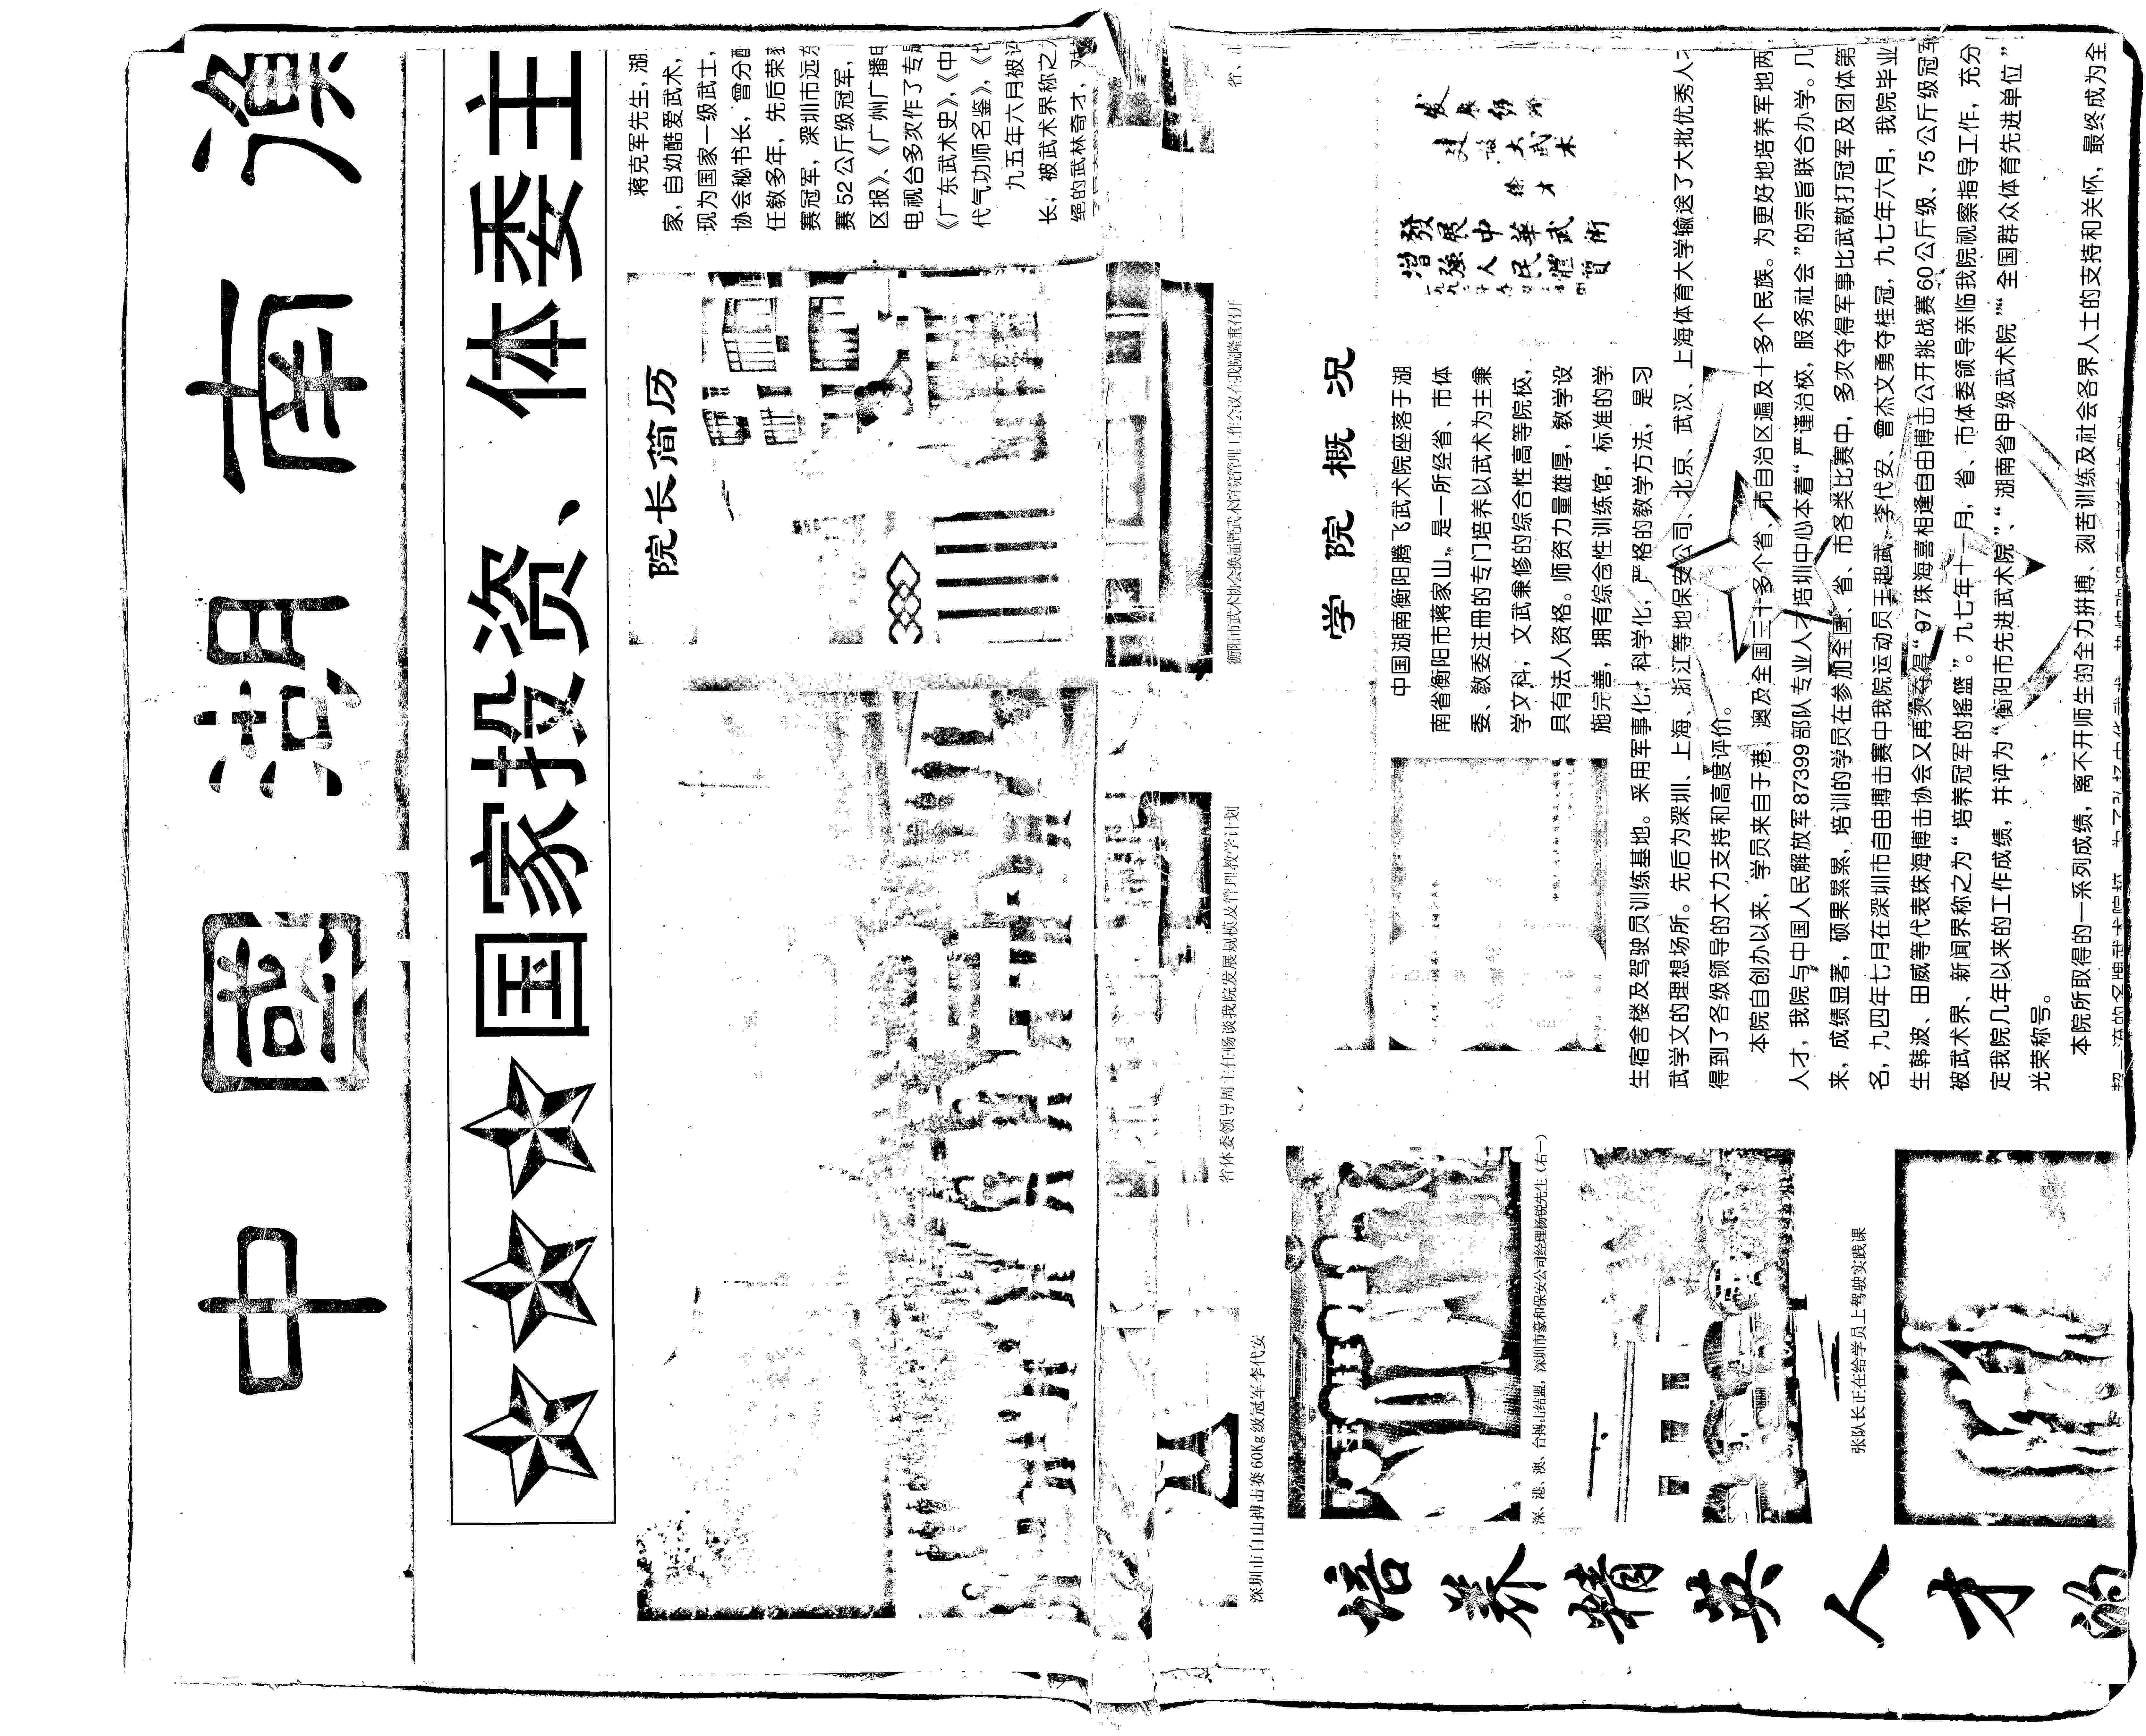 中國湖南
国家投资、体委主
院长简历
蒋克军先生，湖
家，自幼酷爱武术，
现为国家一级武士，
协会秘书长，曾分
任教多年，先后荣
赛冠军，深圳市远
赛52公斤级冠军，
区报》、《广州广播
电视台多次作了专
《广东武术史》，《中
代气功师名鉴》，《
九五年六月被
长；被武术界称之
绝的武林奇才，
深圳市自由搏击赛60Kg级冠军李代安
省体委领导周主任畅谈我院发展规模及管理教学计划
衡阳市武术协会换届暨武术馆院管理工作会议在我院隆重召开
省、
学院概况
中国湖南衡阳腾飞武术院座落于湖
南省衡阳市蒋家山，是一所经省、市体
委、教委注册的专门培养以武术为主兼
学文科；文武兼修的综合性高等院校，
具有法人资格。师资力量雄厚，教学设
施完善，拥有综合性训练馆，标准的学
生宿舍楼及驾驶员训练基地。采用军事化，科学化，严格的教学方法，是习
武学文的理想场所。先后为深圳、上海、浙江等地保安公司、北京、武汉、上海体育大学输送了大批优秀人
得到了各级领导的大力支持和高度评价。
本院自创办以来，学员来自于港、澳及全国三十多个省、市自治区遍及十多个民族。为更好地培养军地两
人才，我院与中国人民解放军87399部队专业人才培圳中心本着“严谨治校，服务社会”的宗旨联合办学。几
来，成绩显著，硕果累累，培训的学员在参加全国、省、市各类比赛中，多次夺得军事比武散打冠军及团体第
名，九四年七月在深圳市自由搏击赛中我院运动员王起武、李代安、曾杰文勇夺桂冠，九七年六月，我院毕业
生韩波、田威等代表珠海博击协会又再次夺得“97珠海喜相逢自由博击公开挑战赛60公斤级、75公斤级冠军
被武术界、新闻界称之为“培养冠军的摇篮”。九七年十一月，省、市体委领导亲临我院视察指导工作，充分
定我院几年以来的工作成绩，并评为“衡阳市先进武术院”、“湖南省甲级武术院”“全国群众体育先进单位”
光荣称号。
本院所取得的一系列成绩，离不开师生的全力拼搏、刻苦训练及社会各界人士的支持和关怀，最终成为全
發展中華武術
增强人民體質
发展经济
建设大武术
徐才
深、港、澳、台搏击结盟，深圳市豪和保安公司经理杨锐先生（右一）
张队长正在给学员上驾驶实践课
培养精英人才的